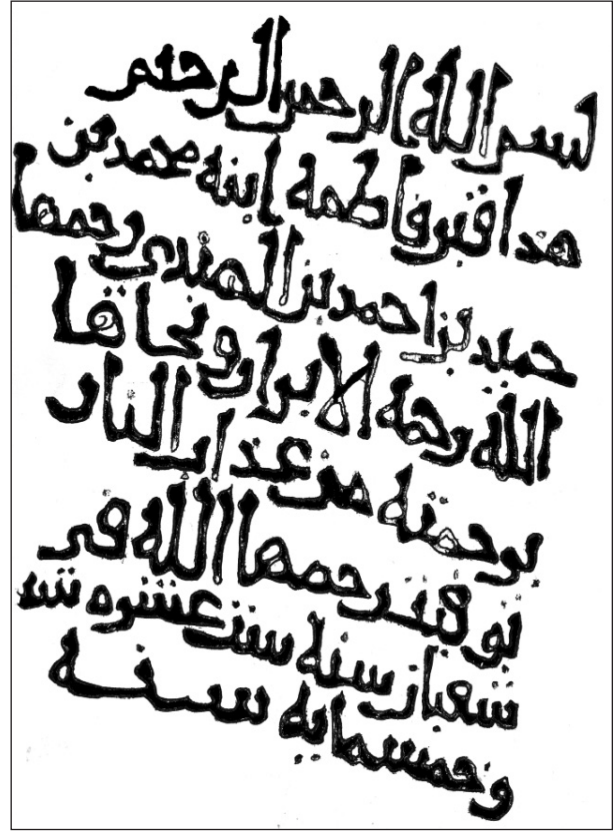 بسم الله الرحمن الرحيم
هذا قبر فاطمه ابنه محمد بن
حميد بن احمد بن الهندى رحمها
الله رحمه الابرار ونجاها
برحمته من عذاب النار
توفيت رحمها الله في
شعبان سنه ست عشره
وخمسمايه سنه